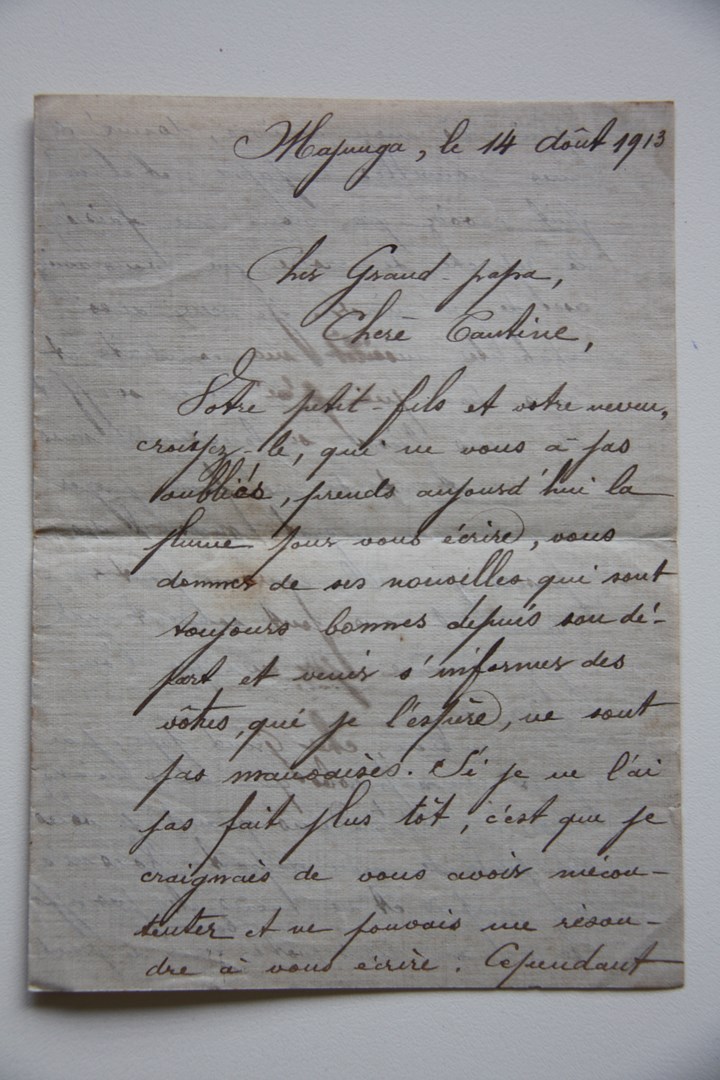 Majunga, le 14 Août 1913
Cher Grand-papa,
Chère Tantine,
Votre petit-fils et votre neveu,
croisyez-le, qui ne vous à pas
oubliés, prends aujourd'hui la
plume pour vous écrire, vous
donner de ses nouvelles qui sont
toujours bonnes depuis son dé-
part et venir s'informer des
vôtres, que je l'espère, ne sont
pas mauvaises. Si je ne l'ai
pas fait plus tôt, c'est que je
craignais de vous avoir mécon-
tenter et ne pouvais me résou-
dre à vous écrire. Cependant